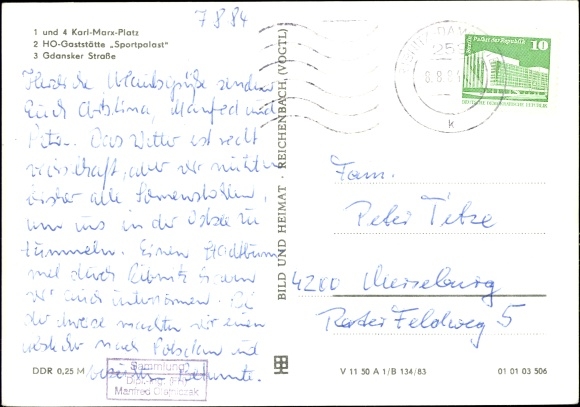 7.8.84
1 und 4 Karl-Marx-Platz
2 HO-Gaststätte „Sportpalast"
3 Gdansker Straße
Herzliche Urlaubsgrüße senden
Euch Manfred und
Das Wetter ist recht
aber wir nutzten
bisher alle Sonnenstrahlen,
um uns in der Ostsee zu
tummeln. Einen Stadtbummel
durch Ribnitz haben
wir auch unternommen. Bei
der machten wir einen
nach Potsdam und
Bekannte.
DDR 0,25 M
Sammlung
Manfred
BILD UND HEIMAT · REICHENBACH (VOGTL)
Palast der Republik
10
DEUTSCHE DEMOKRATISCHE REPUBLIK
8.8.84
k
Fam.
Peter Tetze
4200 Merseburg
Roter Feldweg 5
V 11 50 A 1/B 134/83
01 01 03 506